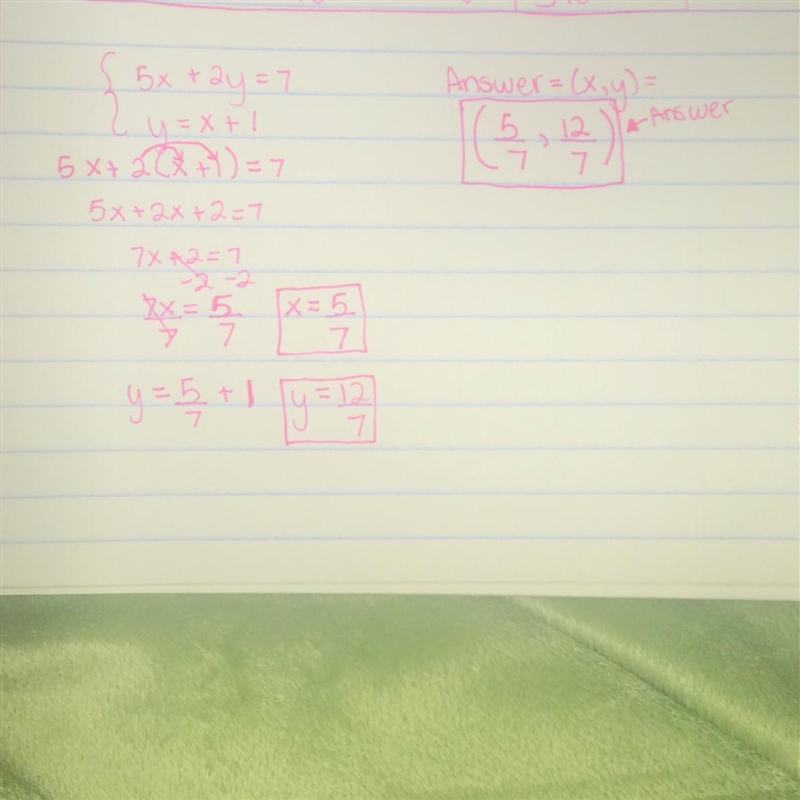 5x + 2y = 7
y = x + 1
5x + 2(x + 1) = 7
5x + 2x + 2 = 7
7x + 2 = 7
-2 -2
7x/7 = 5/7 x = 5/7
y = 5/7 + 1 y = 12/7
Answer = (x, y) =
(5/7, 12/7) ← Answer